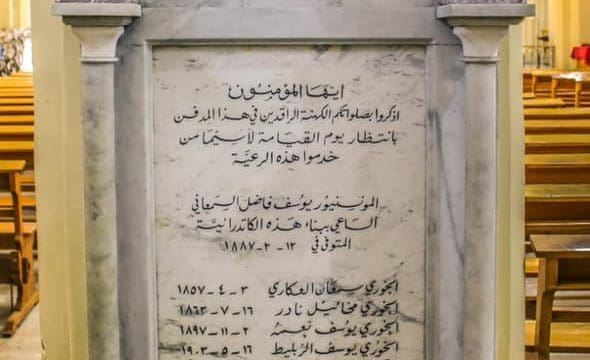 ايها المؤمنون
اذكروا بصلواتكم الكهنة الراقدين في هذا المدفن
بانتظار يوم القيامة لاسيما من
خدموا هذه الرعية
المونسنيور يوسف فاضل السمعاني
الساعي ببناء هذه الكاتدرائية
المتوفى في ١٢ - ٢ - ١٨٨٧
الخوري سمعان العكاري ٣ - ٤ - ١٨٥٧
الخوري مخائيل نادر ١٦ - ٧ - ١٨٦٣
الخوري يوسف نعمه ٢ - ١١ - ١٨٩٧
الخوري يوسف الزليط ١٦ - ٥ - ١٩٠٣